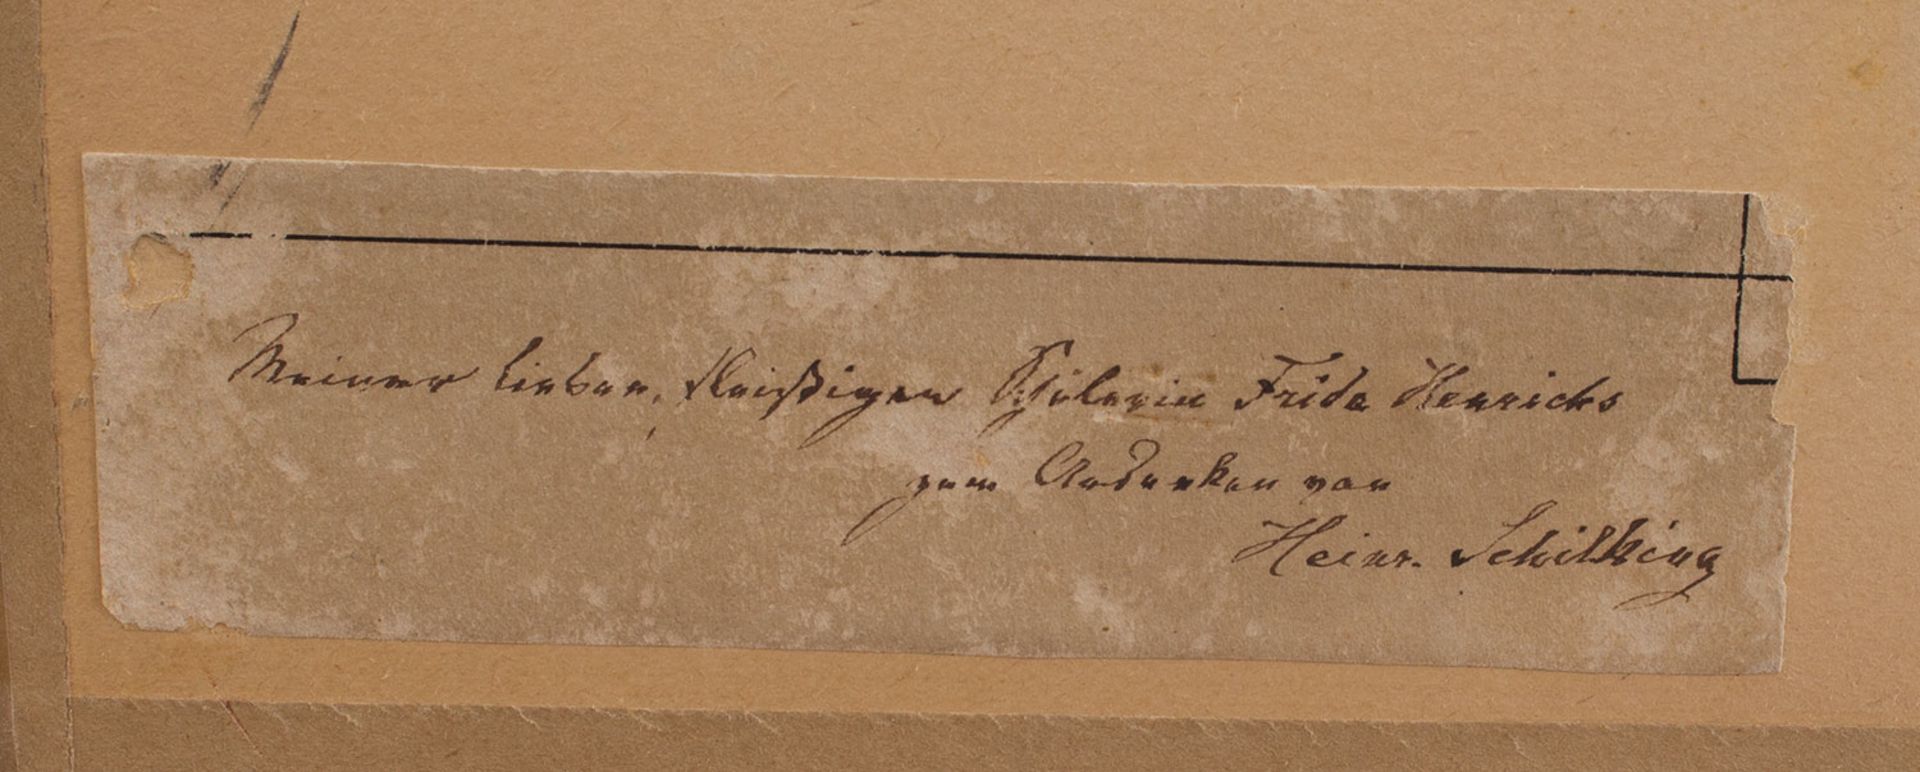 Meiner lieben, fleißigen Schülerin Frida Henrichs
zum Andenken von
Heinr. Schilking